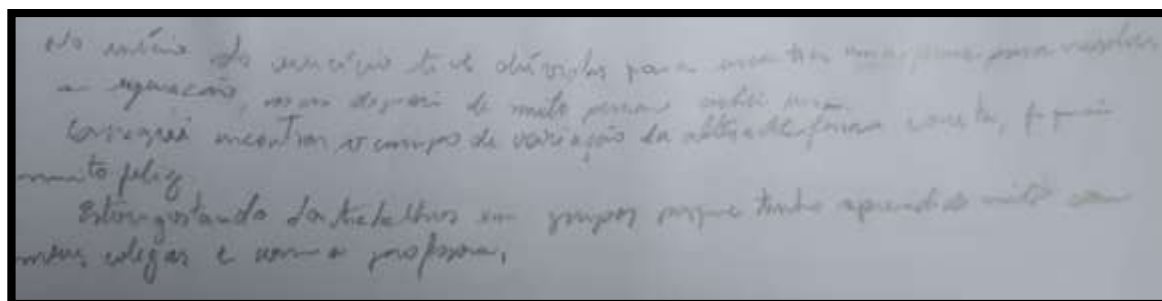 No início do exercício tive dúvidas para encontrar uma forma para resolver
a equação, mas depois de muito pensar achei uma.
Consegui encontrar o campo de variação da altura de forma correta, fiquei
muito feliz
Estou gostando dos trabalhos em grupos porque tenho aprendido muito com
meus colegas e com a professora.